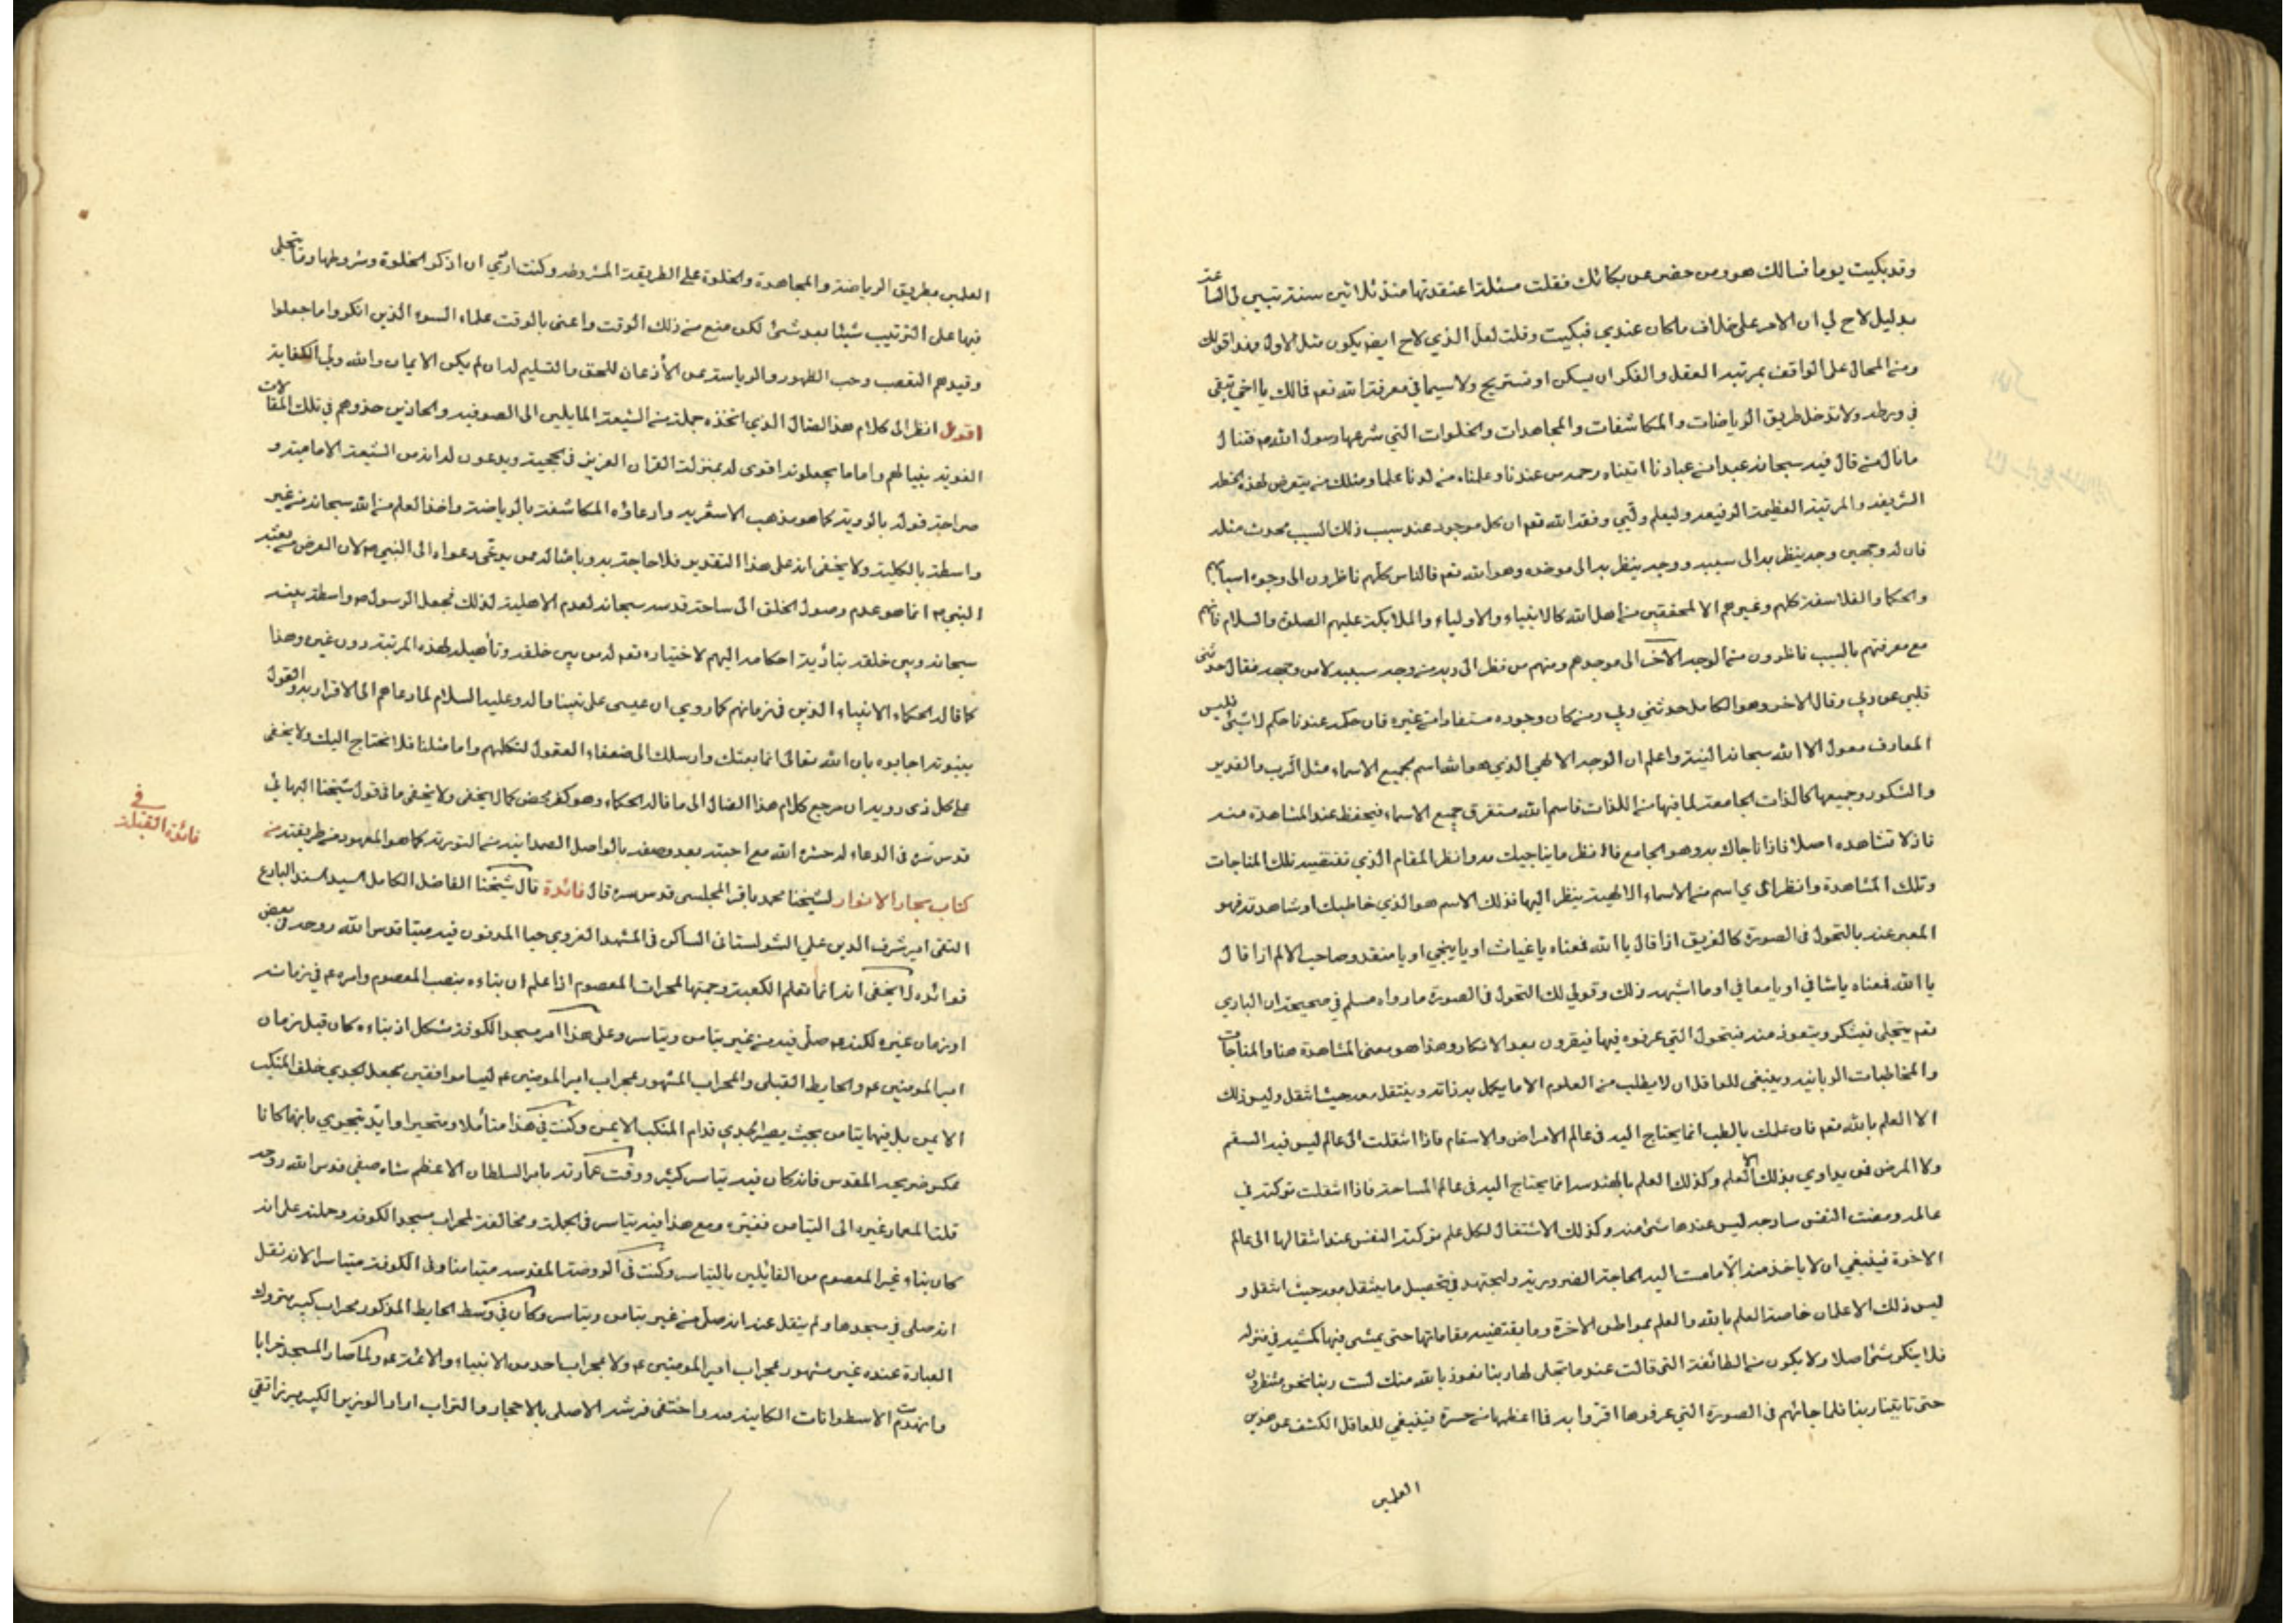 وقد بكيت يوما فسالك هو ومن حضر عن بكائك فقلت مسئلة اعتقدتها منذ ثلاثين سنة تبين لي الساعة
بدليل لاح لي ان الامر على خلاف ما كان عندي فبكيت وقلت لعل الذي لاح ايضا يكون مثل الاول فهذا قولك
ومن المحال على الواقف بمرتبة العقل والفكر ان يسكن او تستريح ولا سيما في معرفة الله تعم فمالك يا اخي تبقى
في ورطه ولا تدخل طريق الرياضات والمكاشفات والمجاهدات والخلوات التي شرعها رسول الله ص فتنال
ما نال من قال فيه سبحانه عبدا من عبادنا اتيناه رحمه من عندنا وعلمناه من لدنا علما ومثلك من يتعرض لهذه الخطه
الشريفه والمرتبة العظيمة الرفيعه وليعلم وليي وفقه الله تعم ان كل موجود عند سبب ذلك السبب محدث مثله
فان له وجهين وجه ينظر به الى سببه ووجه ينظر به الى موجده وهو الله تعم فالناس كلهم ناظرون الى وجوه اسبابهم
والحكما والفلاسفة كلهم وغيرهم الا المحققين من اهل الله كالانبياء والاولياء والملايكة عليهم الصلوة والسلام فانهم
مع معرفتهم بالسبب ناظرون من الوجه الآخر الى موجدهم ومنهم من نظر الى ربه من وجه سببه لا من وجهه فقال حدثني
قلبي عن ربي وقال الاخر وهو الكامل حدثني ربي ومن كان وجوده مستفادا من غيره فان حكمه عندنا حكم لا شئ فليس
المعارف معول الا الله سبحانه البتة واعلم ان الوجه الالهي الذي هو الله اسم لجميع الاسماء مثل الرب والقدير
والشكور وجميعها كالذات الجامعة لما فيها من اللذات فاسم الله مستغرق جميع الاسماء فيحفظ عند المشاهدة منه
فانه لا تشاهده اصلا فاذا ناجاك به وهو الجامع فانظر ما يناجيك به وانظر المقام الذي تقتضيه تلك المناجات
وتلك المشاهدة وانظر الى اي اسم من الاسماء الالهية ينظر اليها فذلك الاسم هو الذي خاطبك او شاهدته فهو
المعبر عنه بالتحول في الصورة كالغريق اذا قال يا الله فمعناه يا غياث او يا ينجي او يا منقذ وصاحب الالم اذا قال
يا الله فمعناه يا شافي او يا معافي او ما اشبهه ذلك وقولي لك التحول في الصورة ما رواه مسلم في صحيحه ان الباري
تعم يتجلى فينكر ويتعوذ منه فيتحول التي عرفوه فيها فيقرون بعد الانكار وهذا هو معنى المشاهدة هنا والمناجات
والمخاطبات الربانيه وينبغي للعاقل ان لا يطلب من العلوم الا ما يكمل به ذاته وينتقل معه حيث انتقل وليس ذلك
الا العلم بالله تعم فان علمك بالطب انما يحتاج اليه في عالم الامراض والاسقام فاذا انتقلت الى عالم ليس فيه السقم
ولا المرض فمن يداوي بذلك العلم وكذلك العلم بالهندسه انما يحتاج اليه في عالم المساحة فاذا انتقلت تركته في
عالمه ومضت النفس ساذجه ليس عندها شئ منه وكذلك الاشتغال لكل علم تركته النفس عند انتقالها الى عالم
الاخرة فينبغي ان لا ياخذ منه الا ما مست اليه الحاجة الضرورية وليجتهد في تحصيل ما ينتقل معه حيث انتقل و
ليس ذلك الا علمان خاصة العلم بالله والعلم بمواطن الاخرة وما يقتضيه مقاماتها حتى يمشى فيها كمشيه في منزله
فلا ينكر شئ اصلا ولا يكون من الطائفة التي قالت عندما تجلى لها ربنا نعوذ بالله منك لست ربنا نحن منتظرون
حتى تايتنا ربنا فلما جائهم في الصورة التي عرفوها اقروا به فما اعظمها من حسرة فينبغي للعاقل الكشف عن هذين
العلمين
العلمين بطريق الرياضة والمجاهدة والخلوة على الطريقة المشروطه وكنت اريد ان اذكر الخلوة وشروطها وما يتجلى
فيها على الترتيب شيئا بعد شئ لكن منع من ذلك الوقت واعنى بالوقت علماء السوء الذين انكروا ما جعلوا
وقيدهم التعصب وحب الظهور والرياسة عن الأذعان للحق والتسليم له ان لم يكن الايمان والله ولي الكفاية
اقول انظر الى كلام هذا الضال الذي اتخذه جملة من الشيعة المايلين الى الصوفيه والحاذين حذوهم في تلك المقالات
الغويه بغيا لهم واماما يجعلونه اقوى له بمنزلة القران العزيز في الحجية ويدعون له انه من الشيعة الامامية و
صراحة قوله بالروية كما هو مذهب الاشعريه وادعاؤه المكاشفة بالرياضة واخذ العلم من الله سبحانه من غير
واسطة بالكلية ولا يخفى انه على هذا التقدير فلا حاجة به وبامثاله ممن يدعى دعواه الى النبي ص لان الغرض من بعثه
النبي ص انما هو عدم وصول الخلق الى ساحة قدسه سبحانه لعدم الاهلية لذلك فجعل الرسول ص واسطة بينه
سبحانه وبين خلقه بتأدية احكامه اليهم لاختياره تعم له من بين خلقه وتأهيله لهذه المرتبة دون غيره وهذا
كما قاله الحكماء الانبياء الذين في زمانهم كما روي ان عيسى على نبينا واله وعليه السلام لما دعاهم الى الاقرار به والقول
بنبوته اجابوه بان الله تعالى انما بعثك وارسلك الى ضعفاء العقول لتكلهم واما مثلنا فلا نحتاج اليك ولا يخفى
على كل ذى رويه ان مرجع كلام هذا الضال الى ما قاله الحكماء وهو كفر محض كما لا يخفى ولا يخفى ما في قول شيخنا البهائي
قدس سره في الدعاء له حشره الله مع احبته بعد وصفه بالواصل الصمدانيه من التويه كما هو المعهود من طريقته من
كتاب بحار الانوار لشيخنا محمد باقر المجلسى قدس سره قال فائدة قال شيخنا الفاضل الكامل السيد السند البارع
التقى امير شرف الدين علي الشولستانى الساكن في المشهد الغروي حيا المدفون فيه ميتا قدس الله روحه في بعض
فوائده لا يخفى انه انما تعلم الكعبة وجهتها لمحراب المعصوم اذا علم ان بناءه بنصب المعصوم وامره عم في زمانه
او زمان غيره لكنه ص صلى فيه من غير تيامن وتياسر وعلى هذا امر مسجد الكوفة مشكل اذ بناءه كان قبل زمان
امير المومنين عم والحايط القبلى والمحراب المشهور بمحراب امير المومنين عم ليسا موافقين لجعل الجدي خلف المنكب
الايمن بل فيهما تيامن بحيث يصير الجدي قدام المنكب الايمن وكنت في هذا متأملا ومتحيرا وايد تحيري بانهما كانا
عكس ضريحه المقدس فانه كان فيه تياسر كثير ووقت عمارته بامر السلطان الاعظم شاه صفى قدس الله روحه
قلت للمعمار غيره الى التيامن فغيره ومع هذا فيه تياسر في الجملة ومخالفة لمحراب مسجد الكوفه وحملته على انه
كان بناء غير المعصوم من القائلين بالتياسر وكنت في الروضة المقدسه متيامنا وفى الكوفة متياسرا لانه نقل
انه صلى في مسجدها ولم ينقل عنه انه صلى من غير تيامن وتياسر وكان في وسط الحايط المذكور محراب كبير متروك
العبارة عنده غير مشهور بمحراب امير المومنين عم ولا بمحراب احد من الانبياء والائمة عم ولما صار المسجد خرابا
وانهدمت الاسطوانات الكاينة فيه واختفى فرشه الاصلى بالاحجار والتراب اراد الوزير الكبير ميرزا تقي
في
فائدة القبلة